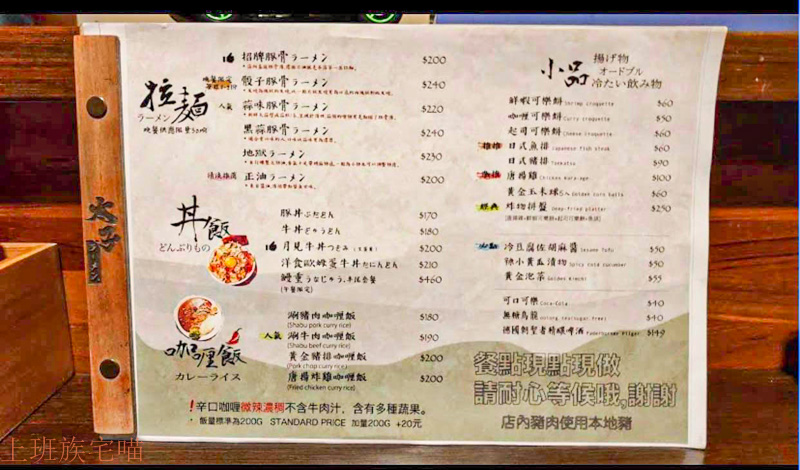 拉麺
ラーメン
晚餐供應限量50碗
招牌豚骨ラーメン $200
骰子豚骨ラーメン $240
人氣 蒜味豚骨ラーメン $220
黑蒜豚骨ラーメン $240
地獄ラーメン $230
正油ラーメン $200
丼飯
どんぶりもの
豚丼ぶたどん $170
牛丼ぎゅうどん $180
月見牛丼つきみ $200
$210
鰻重うなじゅう $460
(午餐限定)
咖哩飯
カレーライス
涮豬肉咖哩飯 $180
(Shabu pork curry rice)
人氣 涮牛肉咖哩飯 $190
(Shabu beef curry rice)
黃金豬排咖哩飯 $200
(Pork chop curry rice)
唐揚炸雞咖哩飯 $200
(Fried chicken curry rice)
!辛口咖哩微辣濃稠不含牛肉汁，含有多種蔬果。
・飯量標準為200G STANDARD PRICE 加量200G +20元
小品
揚げ物
オードブル
冷たい飲み物
鮮蝦可樂餅 Shrimp croquette $60
咖哩可樂餅 Curry croquette $50
起司可樂餅 Cheese croquette $60
日式魚排 Japanese fish steak $60
日式豬排 Tonkatsu $90
唐揚雞 Chicken Karaage $100
黃金玉米球5入 Golden corn balls $60
經典 炸物拼盤 Deep-fried platter $250
冷豆腐佐胡麻醬 Sesame Tofu $50
辣小黃瓜漬物 Spicy cold cucumber $50
黃金泡菜 Golden Kimchi $55
可口可樂 Coca-Cola $40
無糖烏龍 Oolong tea(sugar free) $40
德國朝聖者精釀啤酒 $149
餐點現點現做
請耐心等候哦,謝謝
店內豬肉使用本地豬
太子
上班族宅喵